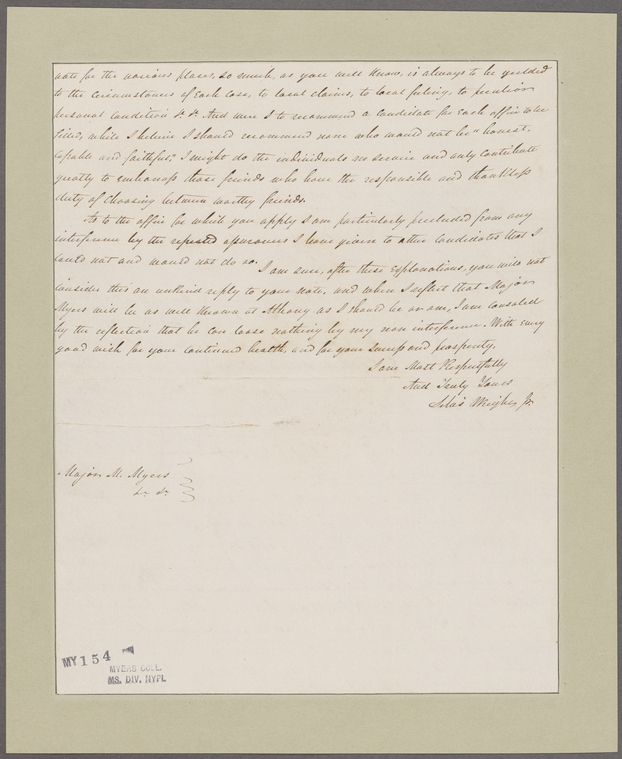 nate for the various places, so much, as you well know, is always to be yielded
to the circumstances of each case, to local claims, to local feeling, to peculiar
personal condition &c &c. And were I to recommend a candidate for each office to be
filled, while I believe I should recommend none who would not be "honest,
capable and faithful," I might do the individuals no service and only contribute
greatly to embarrass those friends who have the responsible and thankless
duty of choosing between worthy friends.
As to the office for which you apply I am particularly precluded from any
interference by the repeated assurances I have given to other candidates that I
could not and would not do so.
I am sure, after these explanations, you will not
consider this an unkind reply to your note, and when I reflect that Major
Myers will be as well known at Albany as I should be or am, I am consoled
by the reflection that he can loose nothing by my non interference. With every
good wish for your continued health, and for your success and prosperity,
I am Most Respectfully
And Truly Yours
Silas Wright, Jr.
Major M. Myers
&c. &c.
MY 154
MYERS COLL.
MS. DIV. NYPL